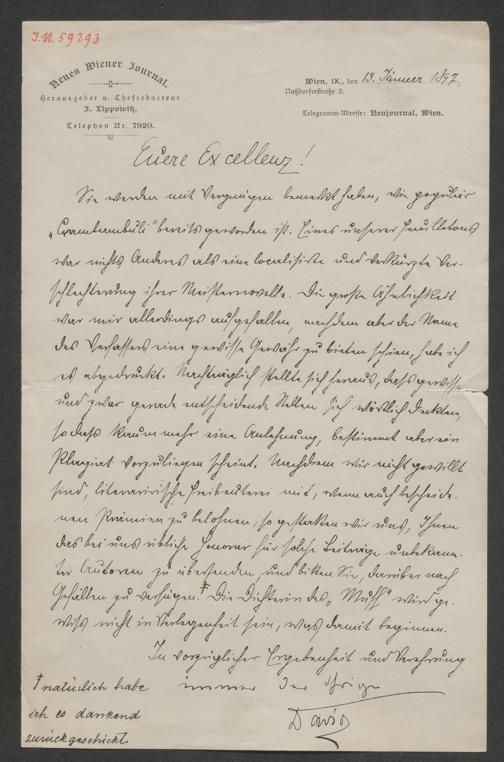 I.N. 59293
Neues Wiener Journal.
Herausgeber u. Chefredacteur
J. Lippowitz.
Telephon Nr. 7920.
Wien, IX., den 13. Jänner 1897.
Nußdorferstraße 3.
Telegramm-Adresse: Neujournal, Wien.
Euere Excellenz!
Sie werden mit Vergnügen bemerkt haben, wie populär
„Crambambuli" bereits geworden ist. Eines unserer Feuilletons
war nichts Anderes als eine localisirte und verkürzte Ver-
schlechterung ihrer Meisternovelle. Die große Ähnlichkeit
war mir allerdings aufgefallen, nachdem aber der Name
des Verfassers eine gewisse Gewähr zu bieten schien, habe ich
es abgedruckt. Nachträglich stellte sich heraus, daß gewisse
und zwar gerade entscheidende Stellen sich wörtlich decken,
so daß kaum mehr eine Anlehnung, bestimmt aber ein
Plagiat vorzuliegen scheint. Nachdem wir nicht gewillt
sind, literarische Freibeuterei mit, wenn auch bescheide-
nen Prämien zu belohnen, so gestatten wir uns, Ihnen
das bei uns übliche Honorar für solche Beiträge unbekann-
ter Autoren zu übersenden und bitten Sie, darüber nach
Gefallen zu verfügen.† Die Dichterin des „Muff" wird ge-
wiss nicht in Verlegenheit sein, was damit beginnen.
In vorzüglicher Ergebenheit und Verehrung
immer der Ihrige
David
† natürlich habe
ich es dankend
zurückgeschickt.